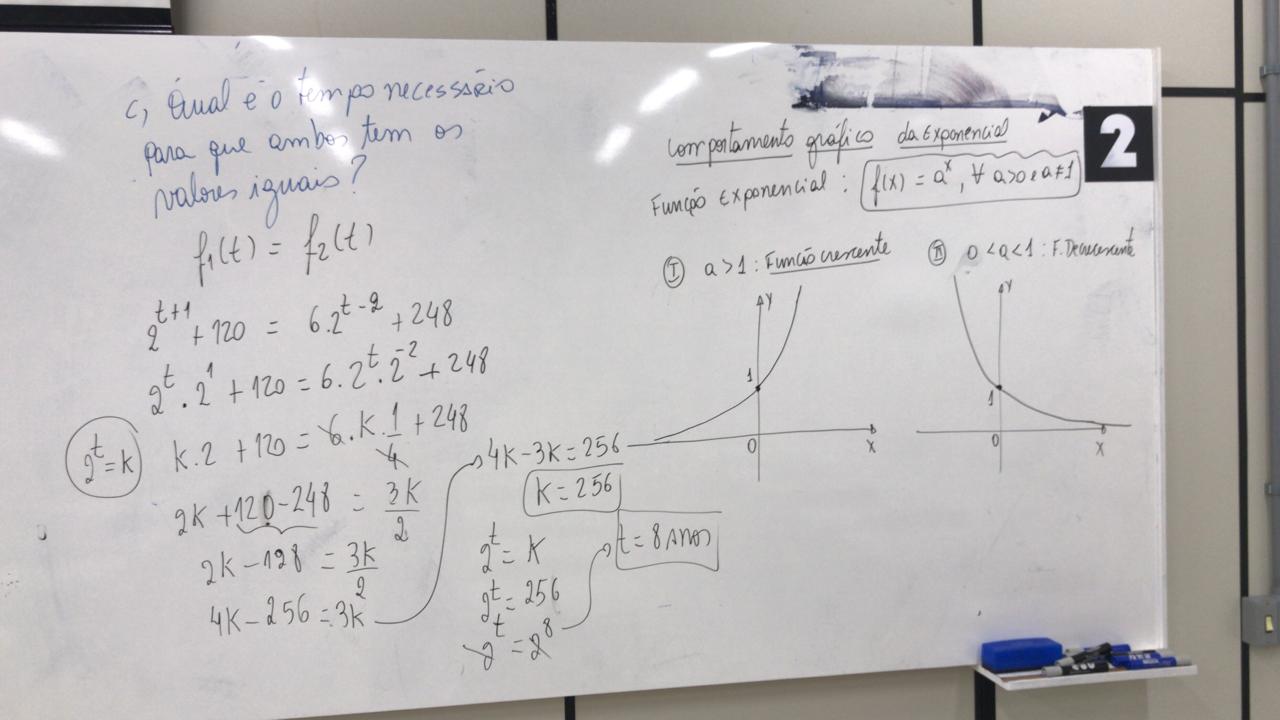 c, Qual é o tempo necessário
para que ambos tem os
valores iguais?
f₁(t) = f₂(t)
2^{t+1} + 120 = 6.2^{t-2} + 248
2^t . 2^1 + 120 = 6.2^t.2^{-2} + 248
2^t = k
k.2 + 120 = 6.k.1/4 + 248
2k + 120 - 248 = 3k/2
2k - 128 = 3k/2
4k - 256 = 3k
4k - 3k = 256
k = 256
2^t = k
2^t = 256
2^t = 2^8
t = 8 anos
2
Comportamento gráfico da Exponencial
Função Exponencial : f(x) = a^x, ∀ a>0 e a≠1
I a > 1 : Função crescente
Y
1
0
X
II 0 < a < 1 : F. Decrescente
Y
1
0
X